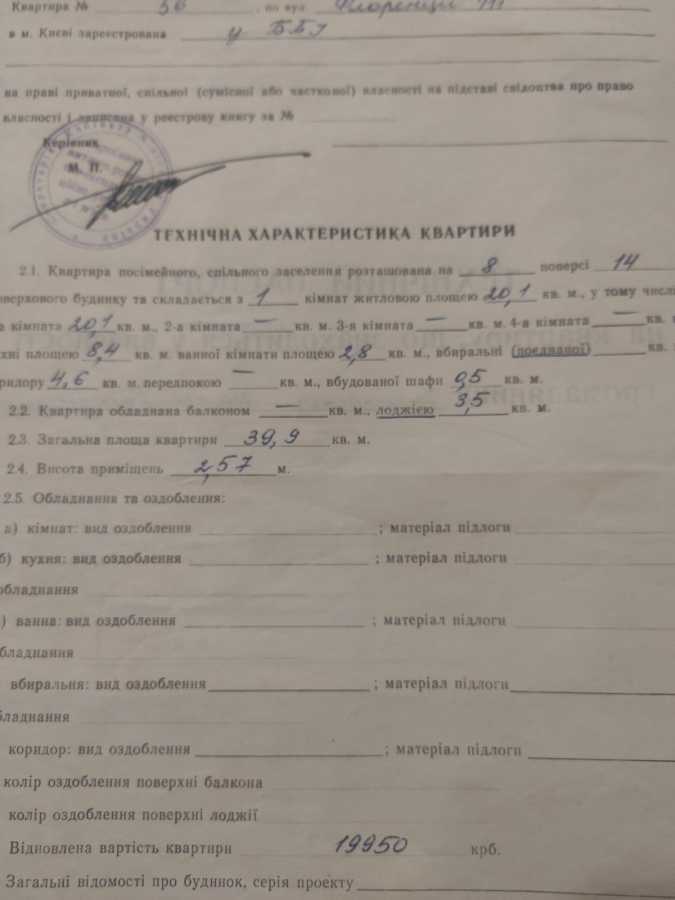 Квартира № 56, по вул. Флоренції
в м. Києві зареєстрована у ББІ
на праві приватної, спільної (сумісної або часткової) власності на підставі свідоцтва про право
власності і записана у реєстрову книгу за №
Керівник
М. П.
ТЕХНІЧНА ХАРАКТЕРИСТИКА КВАРТИРИ
2.1. Квартира посімейного, спільного заселення розташована на 8 поверсі 14
оверхового будинку та складається з 1 кімнат житловою площею 20,1 кв. м., у тому числі
а кімната 20,1 кв. м., 2-а кімната — кв. м. 3-я кімната — кв. м. 4-а кімната — кв.
хні площею 8,4 кв. м. ванної кімнати площею 2,8 кв. м., вбиральні (поєднаної) кв.
ридору 4,6 кв. м. передпокою — кв. м., вбудованої шафи 0,5 кв. м.
2.2. Квартира обладнана балконом — кв. м., лоджією 3,5 кв. м.
2.3. Загальна площа квартири 39,9 кв. м.
2.4. Висота приміщень 2,57 м.
2.5. Обладнання та оздоблення:
а) кімнат: вид оздоблення ; матеріал підлоги
б) кухня: вид оздоблення ; матеріал підлоги
обладнання
) ванна: вид оздоблення ; матеріал підлоги
бладнання
вбиральня: вид оздоблення ; матеріал підлоги
бладнання
коридор: вид оздоблення ; матеріал підлоги
колір оздоблення поверхні балкона
колір оздоблення поверхні лоджії
Відновлена вартість квартири 19950 крб.
Загальні відомості про будинок, серія проекту